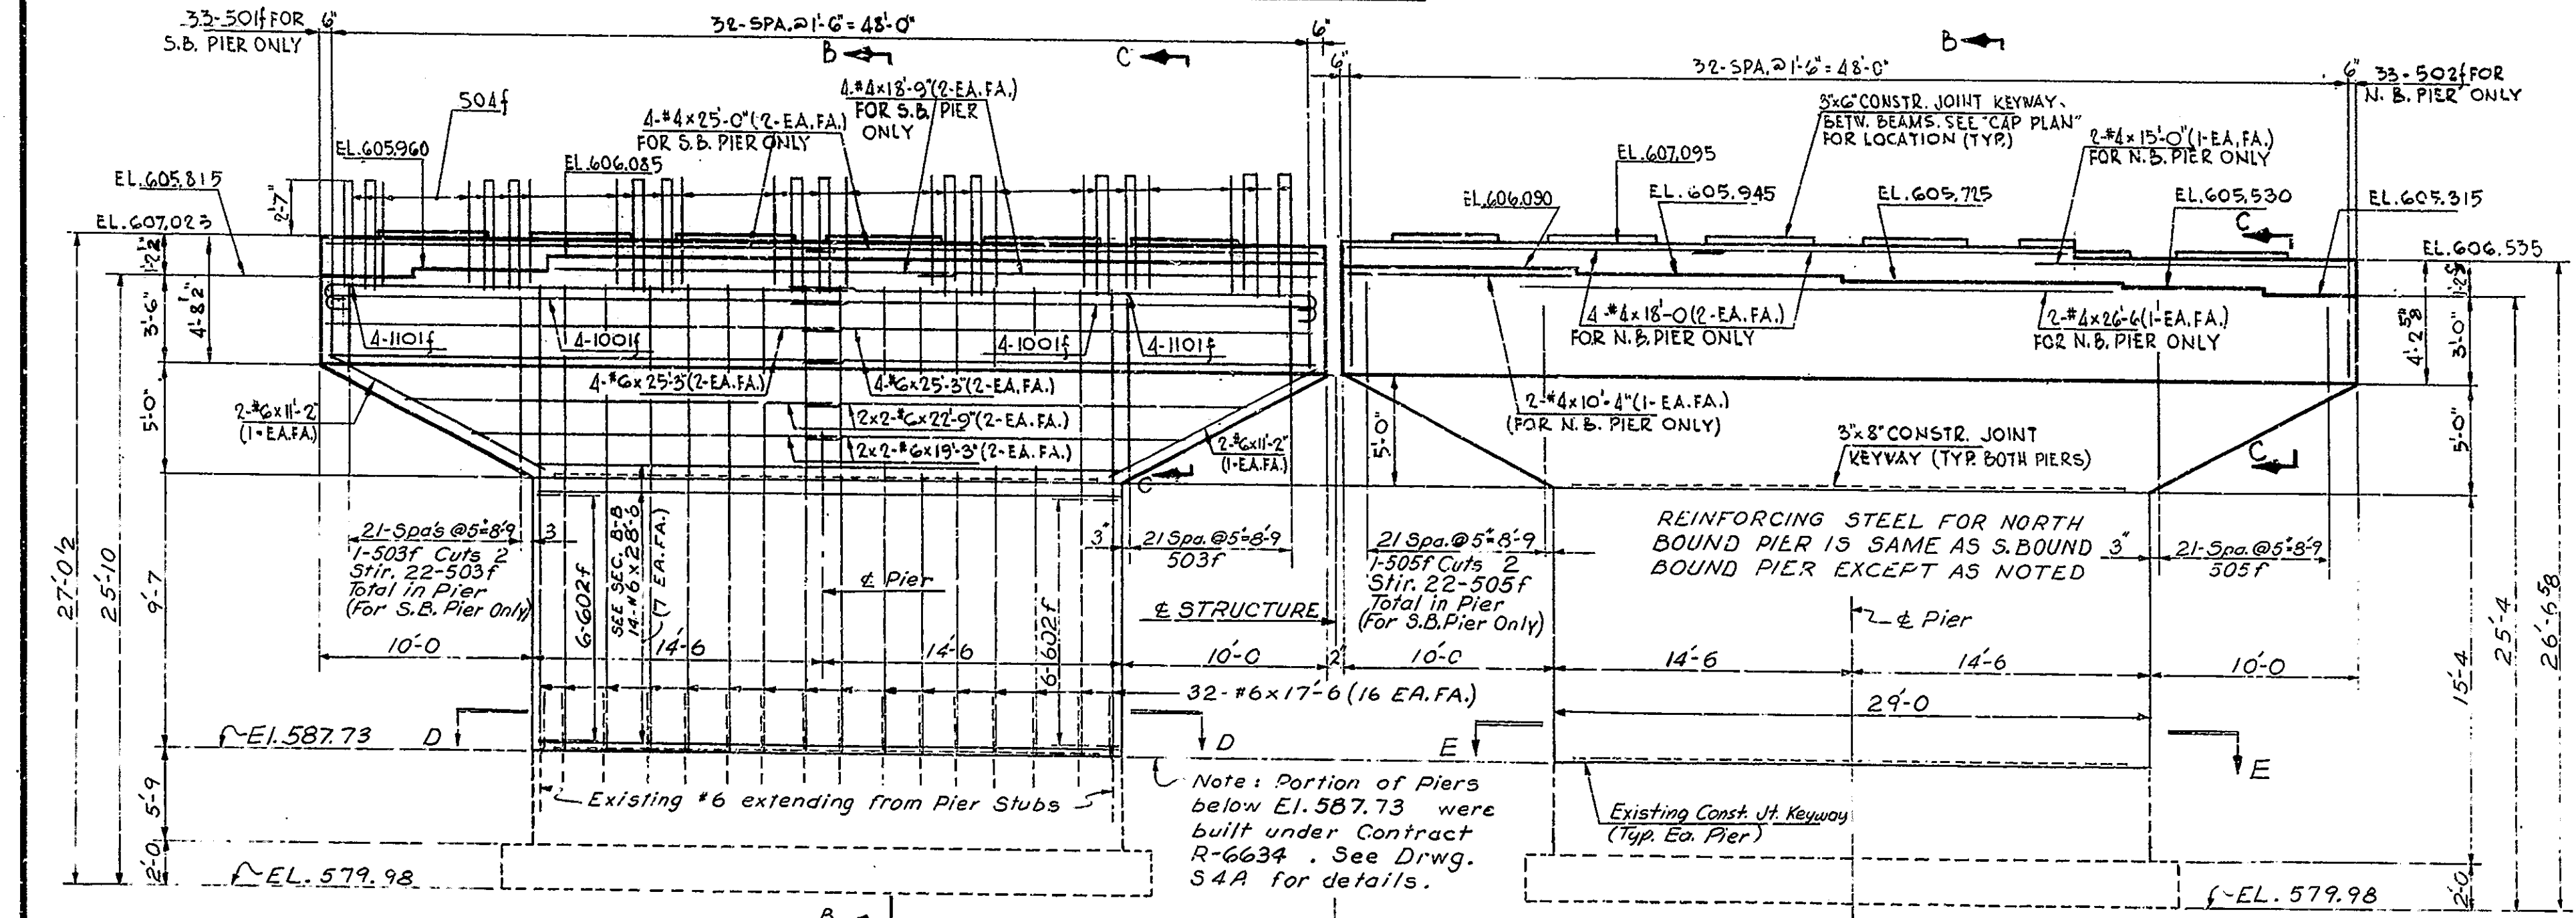 33-501f FOR
S.B. PIER ONLY
6"
32-SPA.@1'-6"=48'-0"
6"
B
C
6"
32-SPA.@1'-6"=48'-0"
B
6"
33-502f FOR
N.B. PIER ONLY
504f
4-#4x25'-0"(2-EA.FA.)
FOR S.B. PIER ONLY
4-#4x18'-9"(2-EA.FA.)
FOR S.B. PIER
ONLY
3"x6" CONSTR. JOINT KEYWAY.
BETW. BEAMS. SEE "CAP PLAN"
FOR LOCATION (TYP.)
2-#4x15'-0"(1-EA.FA.)
FOR N.B. PIER ONLY
EL.605.960
EL.606.085
EL.607.095
EL.605.815
2'-7"
EL.606.090
EL.605.945
EL.605.725
EL.605.530
EL.605.315
EL.607.023
C
EL.606.535
1'-2½"
3'-6"
4'-8½"
4-1101f
4-1001f
4-1001f
4-1101f
4-#4x18'-0(2-EA.FA.)
FOR N.B. PIER ONLY
2-#4x26'-6(1-EA.FA.)
FOR N.B. PIER ONLY
1'-2⅝
3'-0"
4'-2⅝"
4-#6x25'-3"(2-EA.FA.)
4-#6x25'-3"(2-EA.FA.)
5'-0"
2-#6x11'-2"
(1-EA.FA.)
2x2-#6x22'-9"(2-EA.FA.)
2x2-#6x19'-3"(2-EA.FA.)
2-#6x11'-2"
(1-EA.FA.)
5'-0"
2-#4x10'-4"(1-EA.FA.)
(FOR N.B. PIER ONLY)
3"x8" CONSTR. JOINT
KEYWAY (TYP. BOTH PIERS)
C
5'-0"
C
21-Spa's @5"=8'-9
1-503f Cuts 2
Stir. 22-503f
Total in Pier
(For S.B. Pier Only)
3
6-602f
SEE SEC. B-B
14-#6x28'-6
(7 EA.FA.)
₵ Pier
6-602f
3"
21 Spa.@5"=8'-9
503f
21 Spa.@5"=8'-9
1-505f Cuts 2
Stir. 22-505f
Total in Pier
(For S.B. Pier Only)
REINFORCING STEEL FOR NORTH
BOUND PIER IS SAME AS S.BOUND
BOUND PIER EXCEPT AS NOTED
3"
21-Spa.@5"=8'-9
505f
₵ STRUCTURE
₵ Pier
27'-0½
25'-10
9'-7
10'-0
14'-6
14'-6
10'-0
2"
10'-0
14'-6
14'-6
10'-0
15'-4
25'-4
26'-6⅝
32-#6x17'-6 (16 EA.FA.)
29'-0
El.587.73
D
D
E
E
5'-9
Existing #6 extending from Pier Stubs
Note: Portion of Piers
below El.587.73 were
built under Contract
R-6634 . See Drwg.
S4A for details.
Existing Const. Jt. Keyway
(Typ. Ea. Pier)
2'-0
EL. 579.98
2'-0
EL. 579.98
B